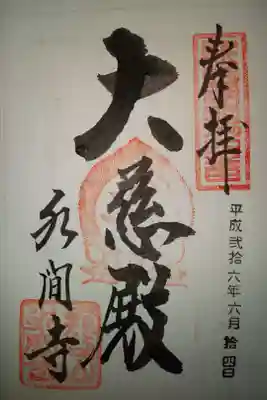 奉拝
平成弐拾六年六月拾四日
大慈殿
水間寺